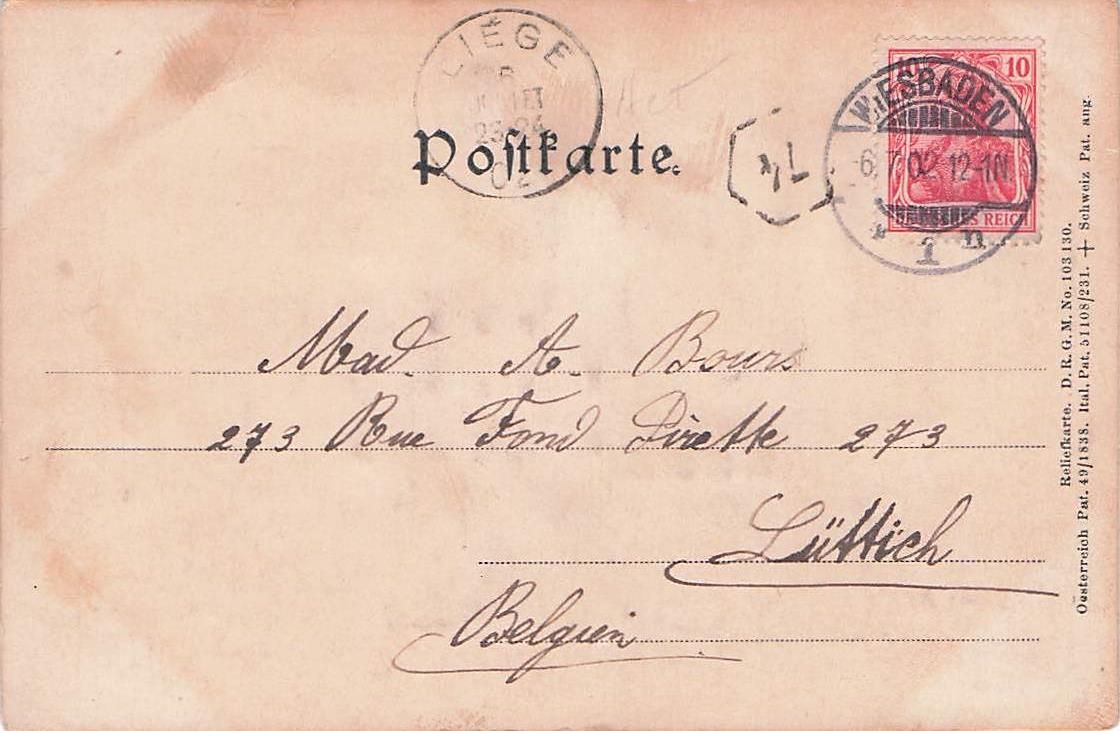 LIÉGE
JUILLET
23-24
02
Postkarte.
10
WIESBADEN
6.7.02.12-1N.
* 1 n
REICH
Mad. A. Bours
273 Rue Fond Pirette 273
Lüttich
Belgien
Reliefkarte. D. R. G. M. No. 103 130.
Oesterreich Pat. 49/1838. Ital. Pat. 51108/231. + Schweiz Pat. ang.